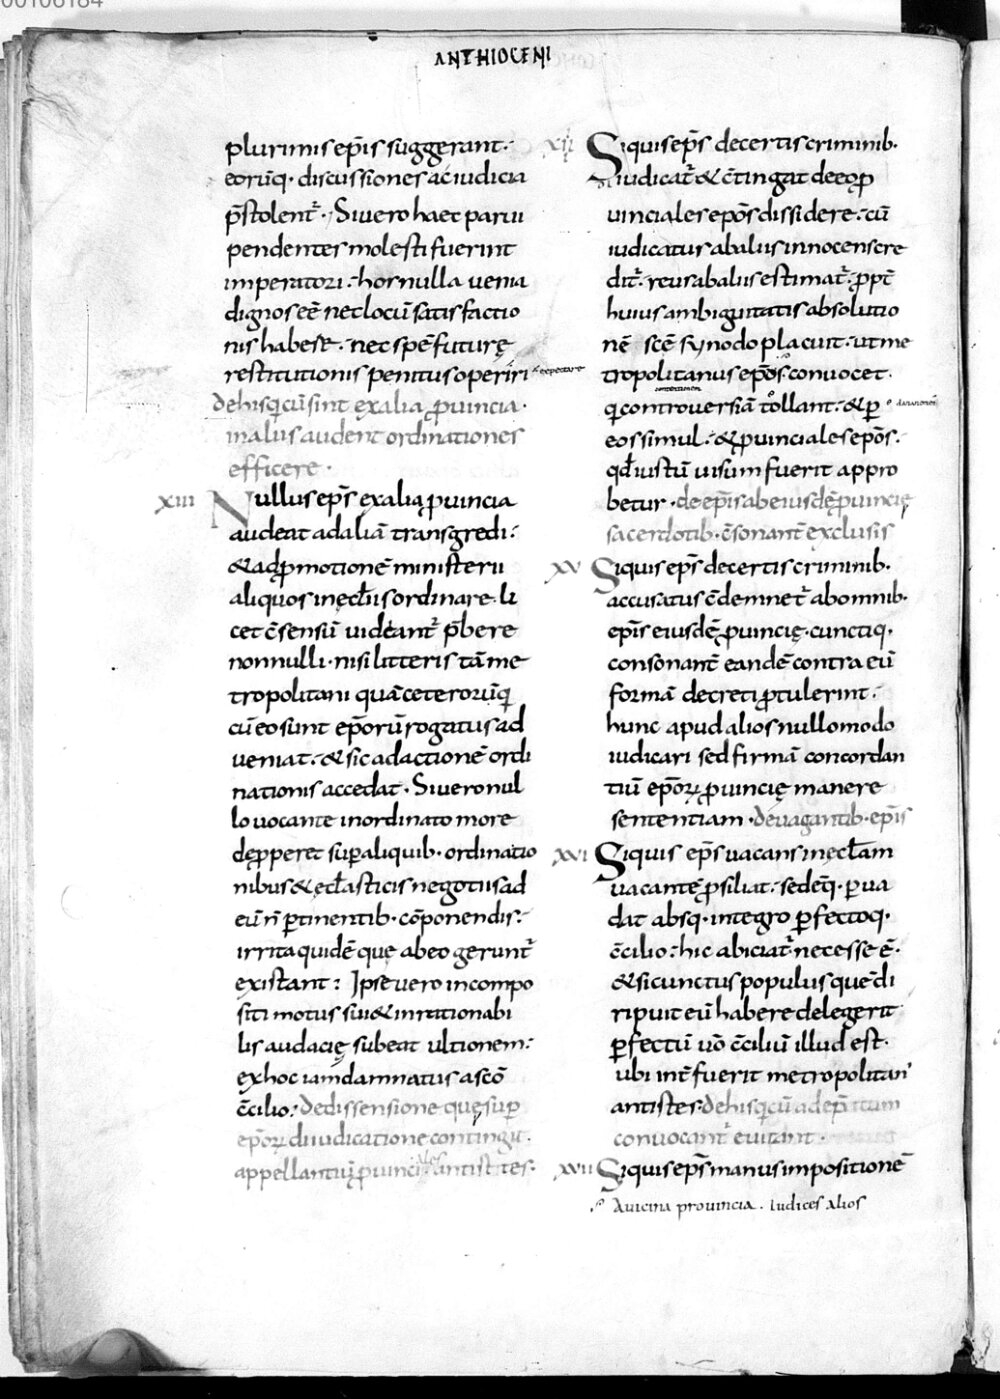 00106184
ANTHIOCENI
plurimis ep̄is suggerant.
eorūq· discussiones ac iudicia
p̄stolent̄· Si vero haec parui
pendentes molesti fuerint
imperatori· hos nulla uenia
dignos eē nec locū satisfactio
nis habese· nec spē futurę
restitutionis penitus operiri expectare
de his q cū sint ex alia ꝓuincia·
in aliis audent ordinationes
efficere·
XIII Nullus ep̄s ex alia ꝓuincia
audeat ad aliā transgredi:
& ad ꝓmotionē ministerii
aliquos in ęcl̄iis ordinare· li
cet c̄sensū uideant̄ p̄bere
nonnulli· nisi litteris tā me
tropolitani quā ceterorūq
cū eo sunt ep̄orū rogatus ad
ueniat· & sic ad actionē ordi
nationis accedat· Si uero nul
lo uocante inordinato more
dęꝑperet suꝑ aliquib· ordinatio
nibus & ecl̄asticis negotiis ad
eū n̄ ꝑtinentib· cōponendis:
irrita quidē que ab eo gerunt̄
existant: Ipse uero incompo
siti motus sui & inrationabi
lis audacię subeat ultionem:
ex hoc iam damnatus a sc̄o
c̄cilio: De dissensione que suꝑ
ep̄oꝝ diiudicatione contingit·
appellantūꝗ ꝓuinciales antistites·
XIIII Si quis ep̄s de certis criminib·
iudicat̄ & c̄tingat de eo ꝓ
uinciales ep̄os dissidere· cū
iudicatus ab aliis innocens cre
dit̄· reus ab aliis estimat̄· ꝓpt̄
huius ambiguitatis absolutio
nē sc̄e synodo placuit· ut me
tropolitanus ep̄os conuocet·
q controuersiā tollant· & ꝑ
eos simul· & ꝓuinciales ep̄os·
qd̄ iustū uisum fuerit appro
betur· de ep̄is ab eiusdē ꝓuincię
sacerdotib· c̄sonant̄ exclusis
XV Si quis ep̄s de certis criminib·
accusatus c̄demnet̄ ab omnib·
ep̄is eiusdē ꝓuincię· cunctiq·
consonant̄ eandē contra eū
formā decreti ꝓtulerint·
hunc apud alios nullo modo
iudicari sed firmā concordan
tiū ep̄oꝝ ꝓuincię manere
sententiam· de uagantib· ep̄is
XVI Si quis ep̄s uacans in ęcl̄am
uacantē ꝓsiliat· sedēq· ꝑua
dat absq· integro ꝑfectoq·
c̄cilio: hic abiciat̄ necesse ē·
& si cunctus populus quē di
ripuit eū habere delegerit
ꝑfectū uō c̄ciliū illud est·
ubi int̄fuerit metropolitan'
antistes· de his q cū ad ep̄atum
conuocant̄ euitant·
XVII Si quis ep̄s manus impositionē
A uicina prouincia· Iudices alios